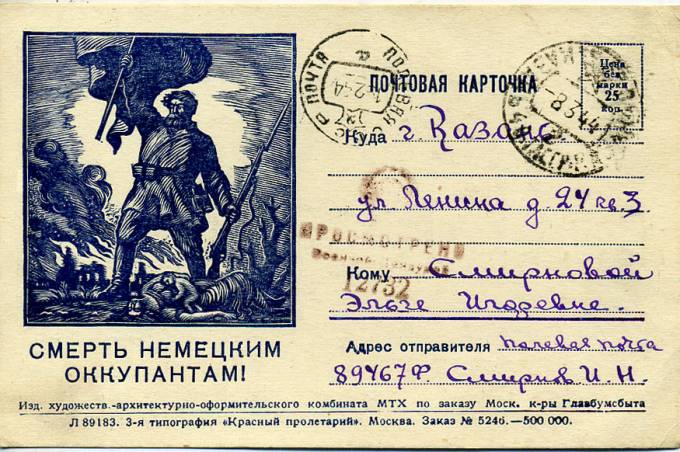 ПОЧТОВАЯ КАРТОЧКА
Цена
без
марки
25
коп.
ПОЛЕВАЯ ПОЧТА
8344
Куда г. Казань
ул Ленина д. 24 кв 3
ПРОСМОТРЕНО
Военной Цензурой
12732
Кому Смирновой
Эльзе Игоревне.
Адрес отправителя полевая почта
89467Ф Смирнов И. Н.
СМЕРТЬ НЕМЕЦКИМ
ОККУПАНТАМ!
Изд. художеств.-архитектурно-оформительского комбината МТХ по заказу Моск. к-ры Главбумсбыта
Л 89183. 3-я типография «Красный пролетарий». Москва. Заказ № 5246.—500 000.